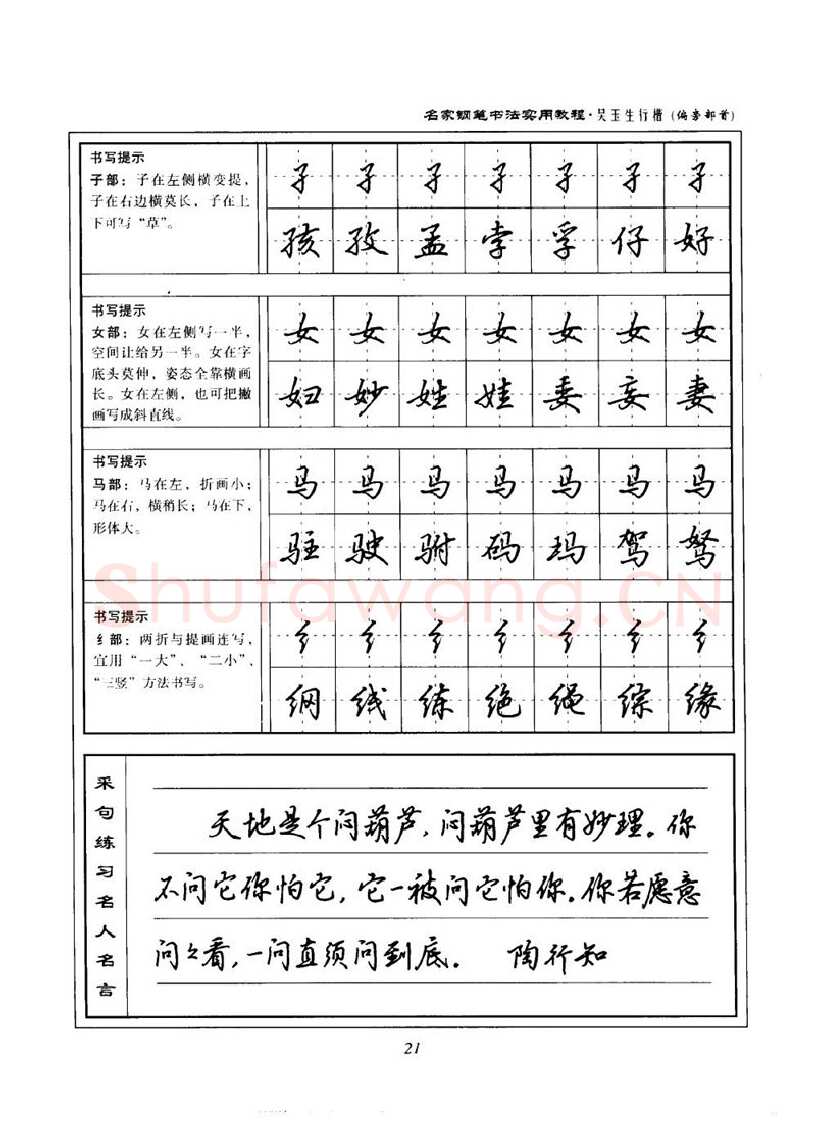 名家钢笔书法实用教程·吴玉生行楷（偏旁部首）
书写提示
子部：子在左侧横变提，
子在右边横莫长，子在上
下可写“草”。
子 子 子 子 子 子 子
孩 孜 孟 孛 孚 仔 好
书写提示
女部：女在左侧写一半，
空间让给另一半。女在字
底头莫伸，姿态全靠横画
长。女在左侧，也可把撇
画写成斜直线。
女 女 女 女 女 女 女
妇 妙 姓 娃 委 妄 妻
书写提示
马部：马在左，折画小；
马在右，横稍长；马在下，
形体大。
马 马 马 马 马 马 马
驻 驶 驸 码 玛 驾 驽
书写提示
纟部：两折与提画连写，
宜用“一大”、“二小”、
“三竖”方法书写。
纟 纟 纟 纟 纟 纟 纟
纲 线 练 绝 绳 综 缘
Shufawang.CN
采句练习名人名言
天地是个闷葫芦，闷葫芦里有妙理。你
不问它你怕它，它一被问它怕你。你若愿意
问々看，一问直须问到底。 陶行知
21